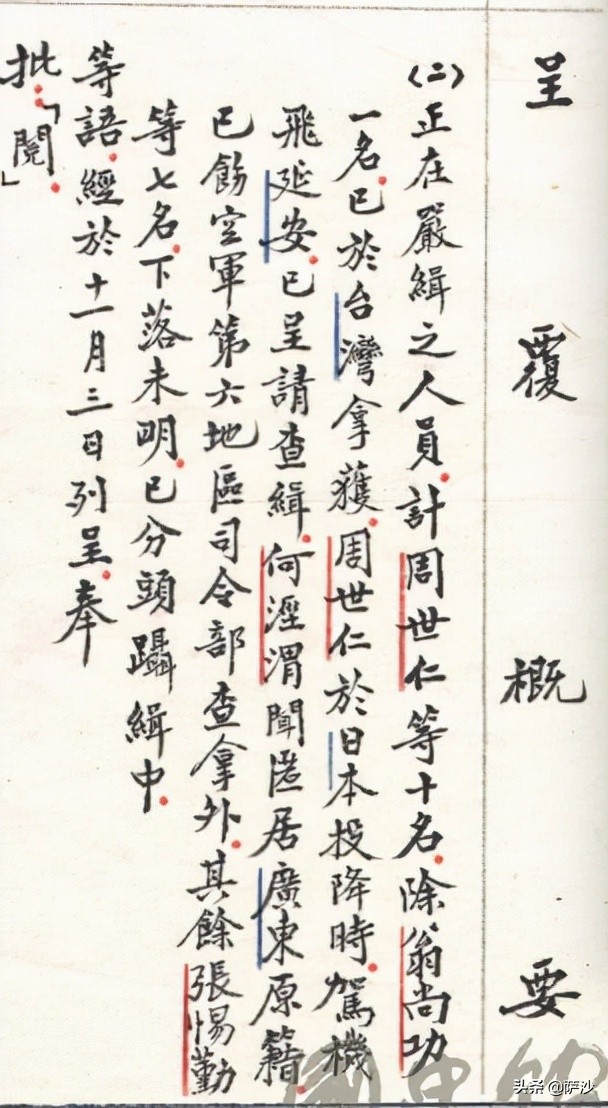 呈覆概要
(二)正在嚴緝之人員.計周世仁等十名.除翁尚功
一名.已於台灣拿獲.周世仁於日本投降時.駕機
飛延安.已呈請查緝.何溼渭聞匿居廣東原籍.
已飭空軍第六地區司令部查拿外.其餘張惕勤
等七名.下落未明.已分頭躡緝中.
等語.經於十一月三日列呈.奉
批:「閱.」
头条 @萨沙